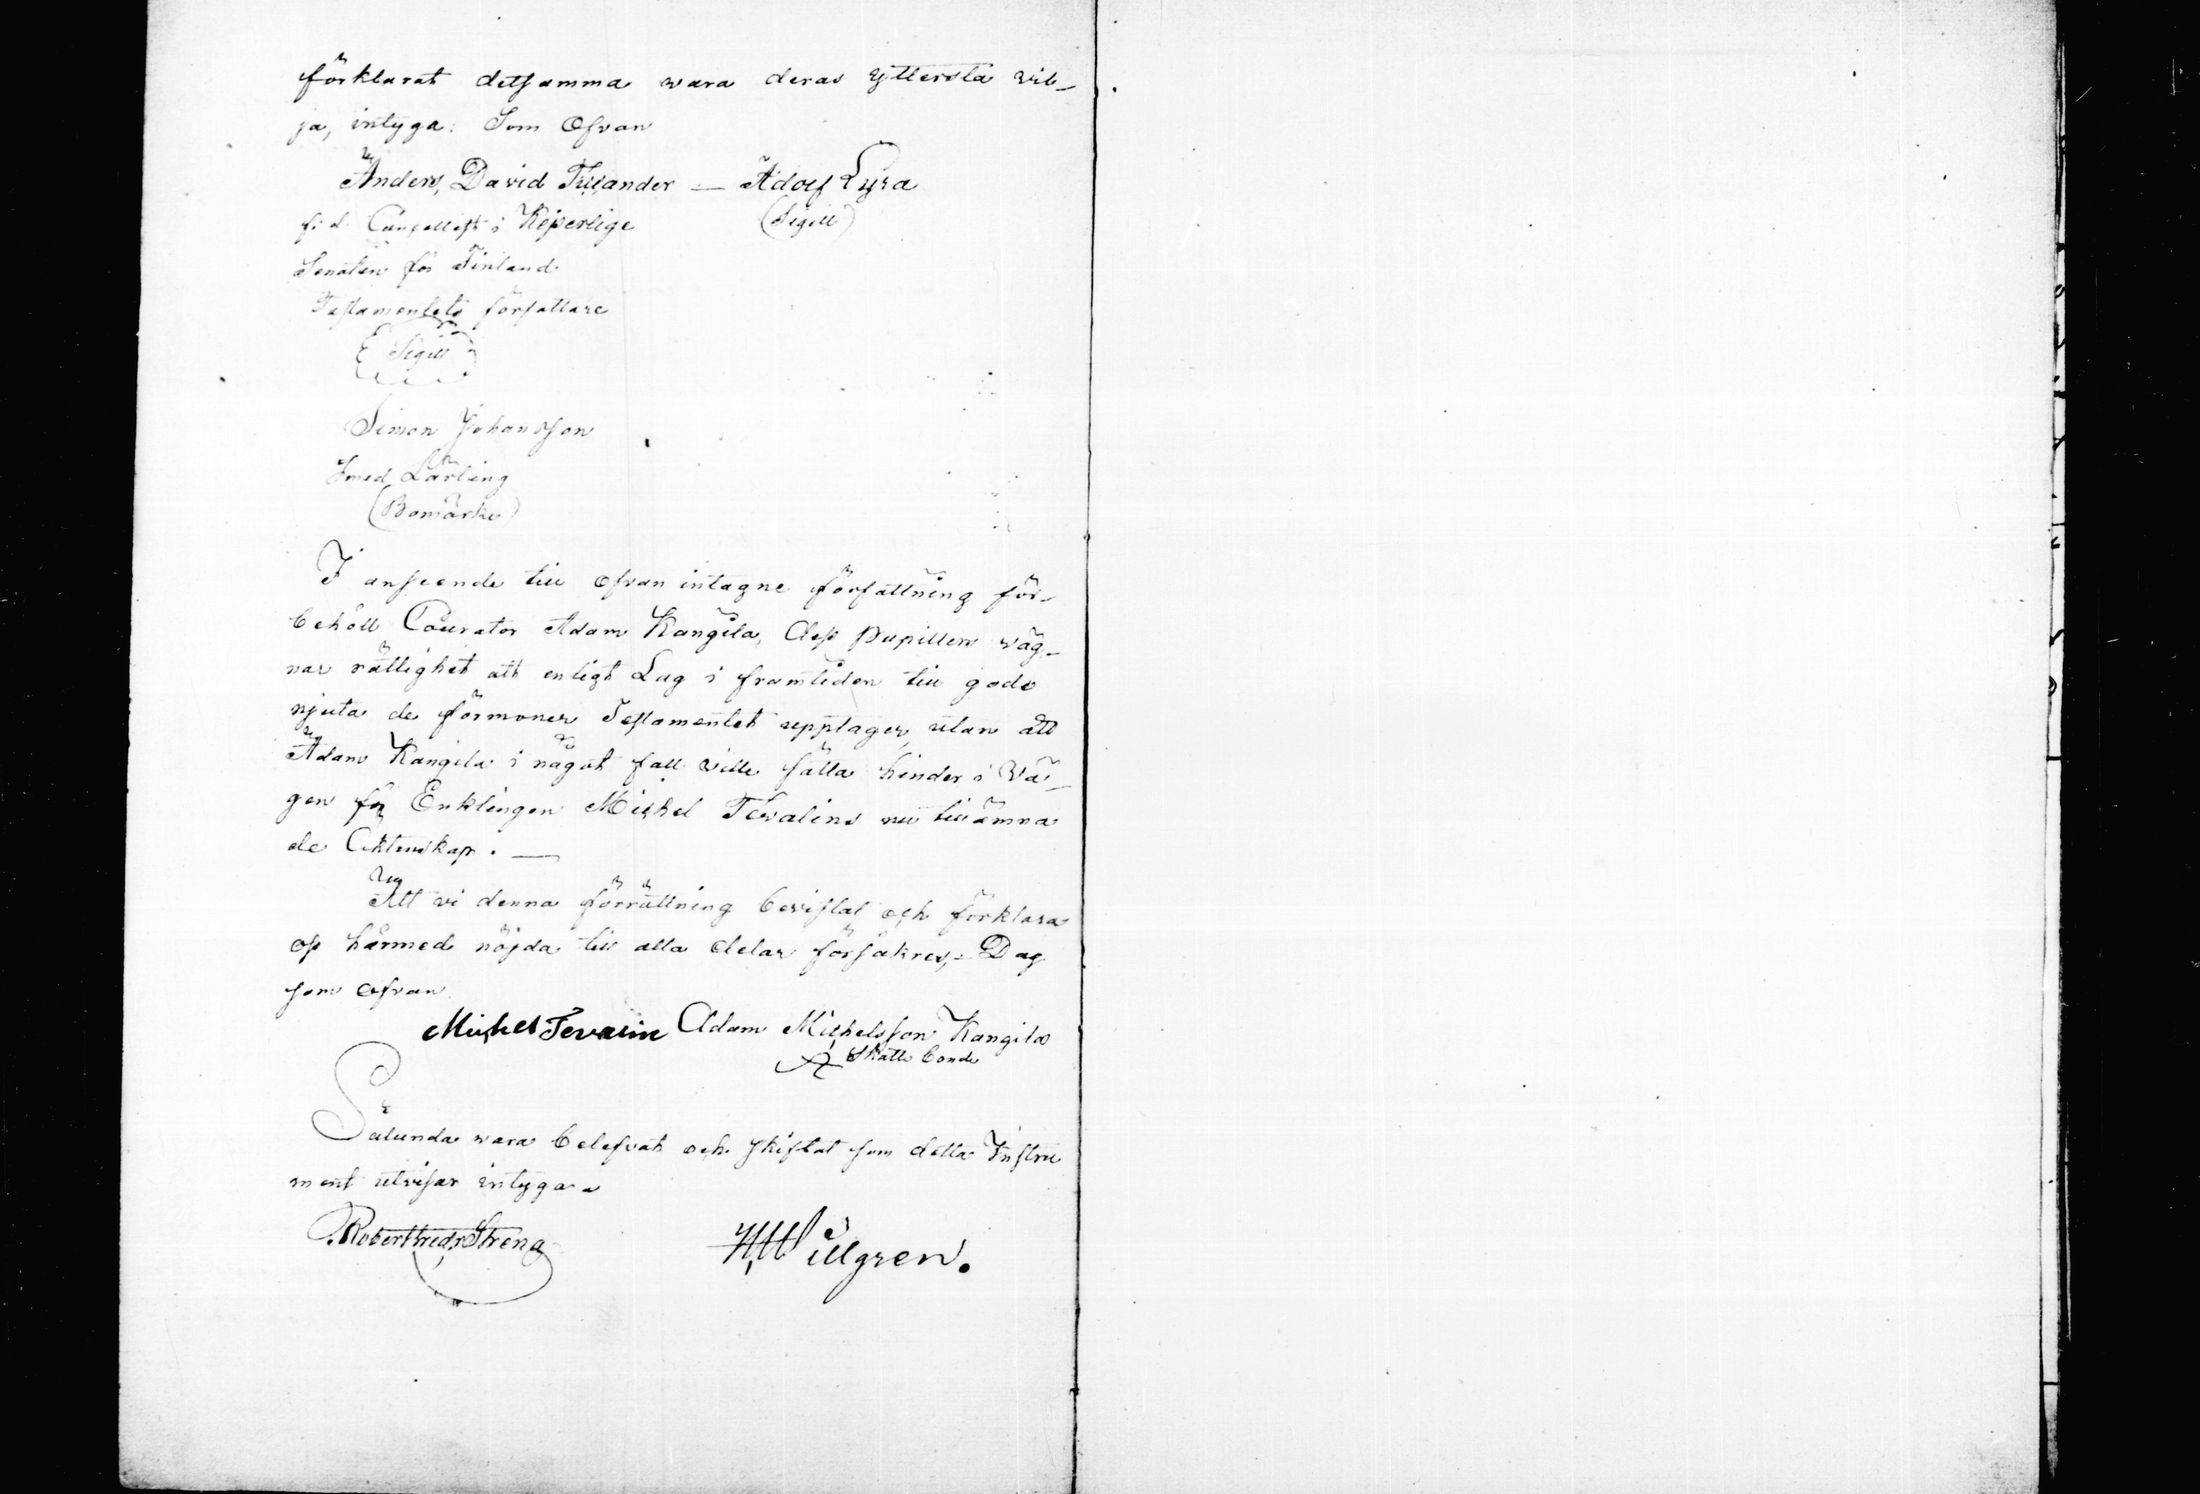 förklarat detsamma vara deras yttersta vil-
ja, intyga: Som Ofvan
Anders David Tillander — Adolf Lyra
f: d: Cancellist i Kejserlige (Sigill)
Senaten för Finland
Testamentets författare
Sigill
Simon Johansson
Smed Lärling
(Bomärke)
I anseende till ofvan intagne författning för-
behöll Courator Adam Kangila, dess pupillers väg-
nar rättighet att enligt Lag i framtiden till godo
njuta de förmoner Testamentet upptager, utan att
Adam Kangila i något fall ville sätta hinder i Vä-
gen för Enklingen Michel Tevalins nu tillämna
de Ecktenskap. —
Att vi denna förrättning bevistat och förklara
oss härmed nöjda till alla delar försäkres, - Dag
som ofvan
Michel Tevalin Adam Michelsson Kangila
Skatte bonde
Sålunda vara belefvat och skiftat som detta Instru
ment utvisar intyga.
Robert Fredr Streng
Willgren.